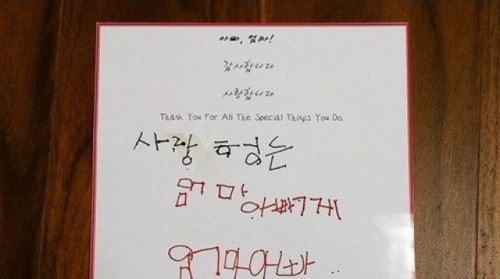 아빠, 엄마!
감사합니다
사랑합니다
Thank You For All The Special Things You Do.
사랑 하는
엄마 아빠게
엄마아빠